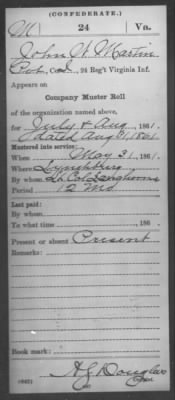 (CONFEDERATE.)
M 24 Va.
John W. Martin
Pvt, Co. 24 Reg't Virginia Inf.
Appears on
Company Muster Roll
of the organization named above,
for July & Aug, 1861.
dated Aug 31, 1861
Mustered into service:
When May 31, 1861.
Where Lynchburg
By whom Lt Col Langhorne
Period 12 Mo
Last paid:
By whom
To what time , 186 .
Present or absent Present
Remarks:
Book mark:
(642) A J Douglas